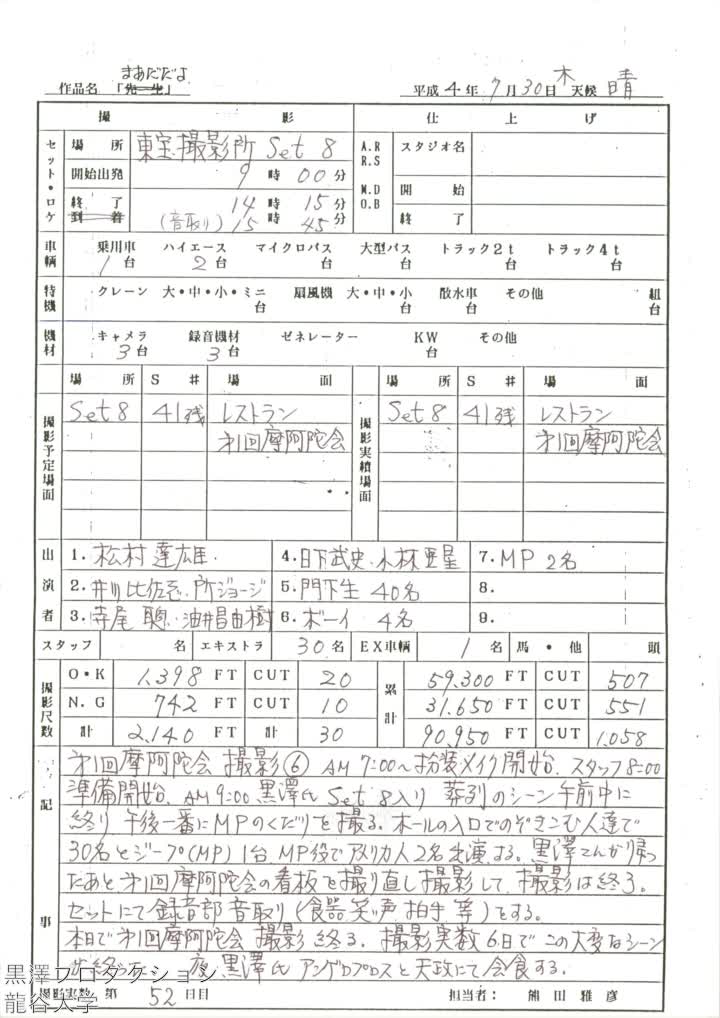 まあだだよ
作品名 「先生」 平成 4 年 7 月 30 日 木 天候 晴
撮 影 仕 上 げ
セット・ロケ 場 所 東宝撮影所 Set 8 A.R R.S M.D O.B スタジオ名
開始出発 9 時 00 分
終 了 14 時 15 分 開 始
到 着 (音取り) 15 時 45 分 終 了
車輌 乗用車 1台 ハイエース 2台 マイクロバス 台 大型バス 台 トラック2t 台 トラック4t 台
特機 クレーン 大・中・小・ミニ 台 扇風機 大・中・小 台 散水車 台 その他 組 台
機材 キャメラ 3台 録音機材 3台 ゼネレーター KW 台 その他
撮影予定場面 場 所 S # 場 面 撮影実績場面 場 所 S # 場 面
Set 8 41残 レストラン Set 8 41残 レストラン
第1回摩阿陀会 第1回摩阿陀会
出演者 1. 松村達雄 4. 日下武史・小林亜星 7. MP 2名
2. 井川比佐志・所ジョージ 5. 門下生 40名 8.
3. 寺尾聰・油井昌由樹 6. ボーイ 4名 9.
スタッフ 名 エキストラ 30名 EX車輌 1名 馬・他 頭
撮影尺数 O・K 1,398 FT CUT 20 累計 59.300 FT CUT 507
N.G 742 FT CUT 10 31.650 FT CUT 551
計 2,140 FT 計 30 90,950 FT CUT 1,058
記事 第1回摩阿陀会 撮影⑥ AM 7:00〜扮装メイク開始. スタッフ8:00
準備開始. AM 9:00 黒澤氏 Set 8入り 葬列のシーン午前中に
終り 午後一番にMPのくだりを撮る. ホールの入口でのぞきこむ人達で
30名とジープ(MP)1台 MP役でアメリカ人2名出演する. 黒澤さんが帰っ
たあと第1回摩阿陀会の看板を撮り直し撮影して. 撮影は終る.
セットにて録音部音取り(食器 笑い声 拍手 等)をする.
本日で第1回摩阿陀会 撮影 終る. 撮影実数6日でこの大変なシーン
が終った. 夜 黒澤氏 アンゲロプロスと天政にて会食する.
撮影実数 第 52 日目 担当者: 熊田雅彦
黒澤プロダクション
龍谷大学